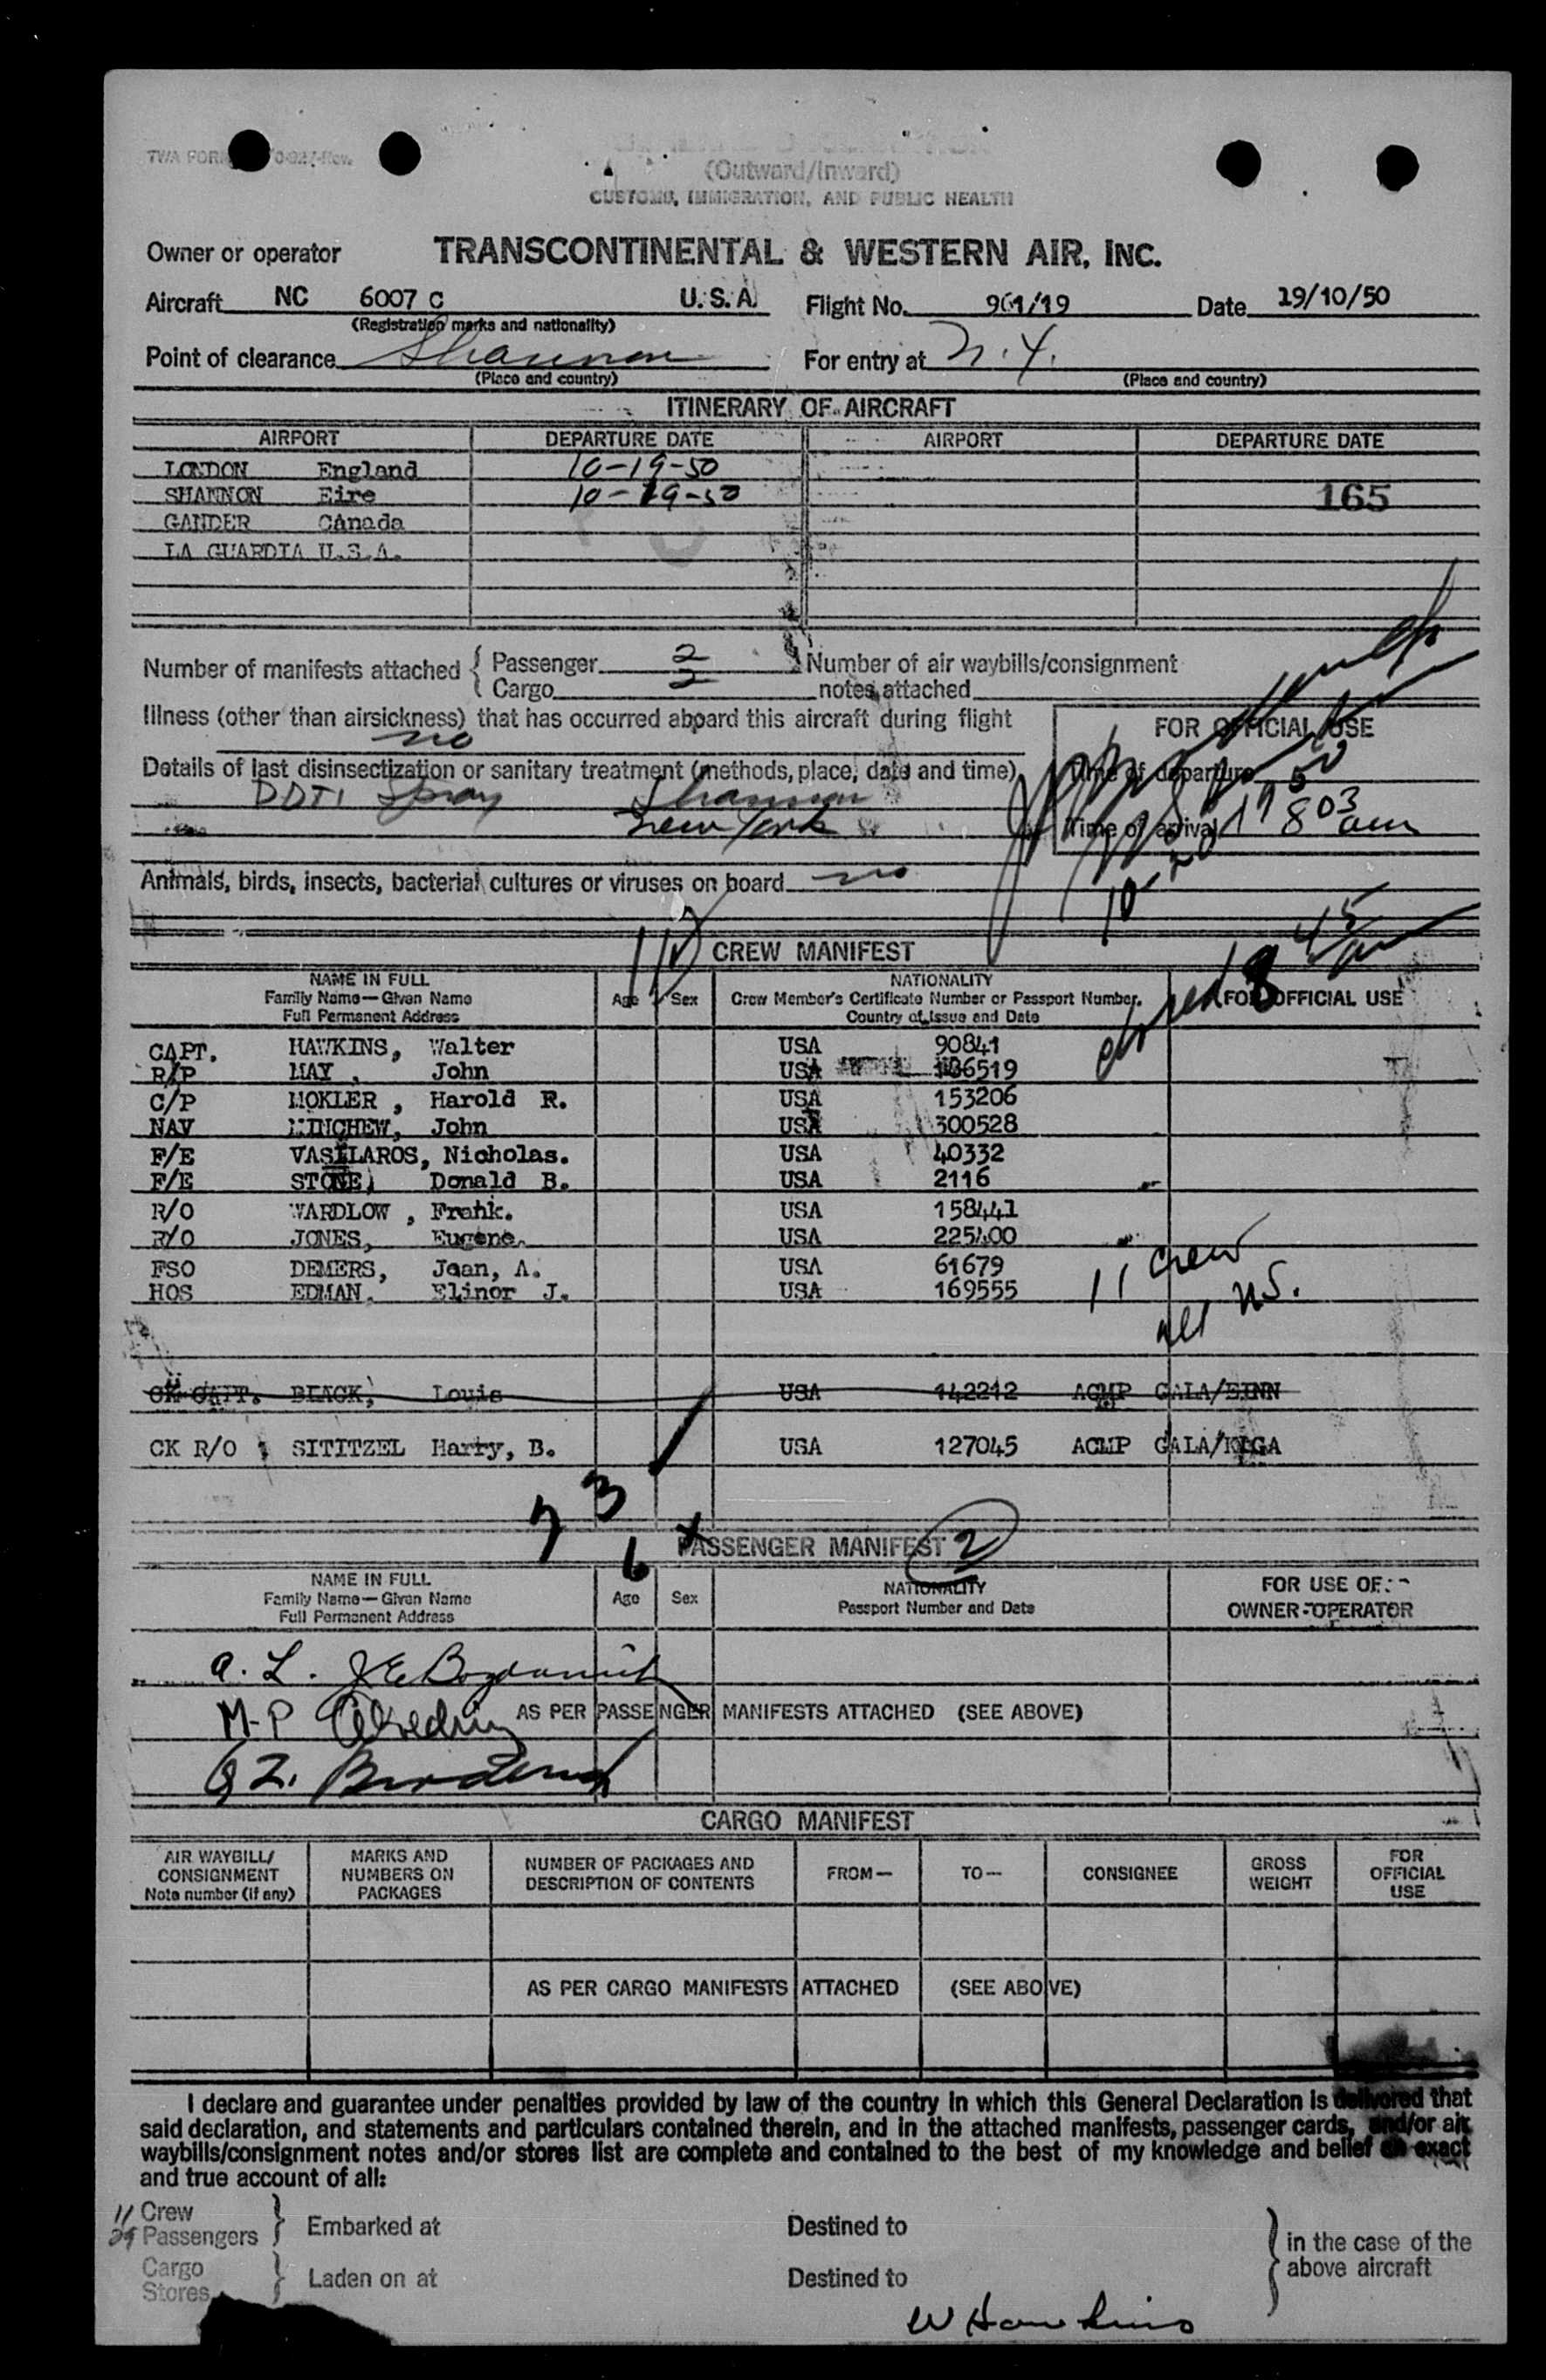 TWA FORM
(Outward/Inward)
CUSTOMS, IMMIGRATION, AND PUBLIC HEALTH
Owner or operator TRANSCONTINENTAL & WESTERN AIR, INC.
Aircraft NC 6007 C U.S.A. Flight No. 961/19 Date 19/10/50
(Registration marks and nationality)
Point of clearance Shannon For entry at N.Y.
(Place and country) (Place and country)
ITINERARY OF AIRCRAFT
AIRPORT DEPARTURE DATE AIRPORT DEPARTURE DATE
LONDON England 10-19-50
SHANNON Eire 10-19-50 165
GANDER CAnada
LA GUARDIA U.S.A.
Number of manifests attached { Passenger 2 Number of air waybills/consignment
Cargo 2 notes attached
Illness (other than airsickness) that has occurred aboard this aircraft during flight
no
FOR OFFICIAL USE
Details of last disinsectization or sanitary treatment (methods, place, date and time)
Time of departure
DDT Spray Shannon
New York
Time of arrival 8 03 am
Animals, birds, insects, bacterial cultures or viruses on board no
CREW MANIFEST
45
8
NAME IN FULL
Family Name—Given Name
Full Permanent Address
Age Sex
NATIONALITY
Crew Member's Certificate Number or Passport Number,
Country of Issue and Date
FOR OFFICIAL USE
CAPT. HAWKINS, Walter USA 90841
R/P MAY , John USA 106519
C/P MOKLER , Harold R. USA 153206
NAV MINCHEW, John USA 300528
F/E VASILAROS, Nicholas. USA 40332
F/E STONE, Donald B. USA 2116
R/O WARDLOW , Frank. USA 158441
R/O JONES, Eugene. USA 225400
FSO DEMERS, Jean, A. USA 61679
HOS EDMAN. Elinor J. USA 169555
11 crew
all US.
CK CAPT. BLACK, Louis USA 142212 ACMP GALA/EINN
CK R/O SITITZEL Harry, B. USA 127045 ACMP GALA/KLGA
7 3
6
PASSENGER MANIFEST 2
NAME IN FULL
Family Name—Given Name
Full Permanent Address
Age Sex
NATIONALITY
Passport Number and Date
FOR USE OF
OWNER-OPERATOR
A. L.
M-P
AS PER PASSENGER MANIFESTS ATTACHED (SEE ABOVE)
CARGO MANIFEST
AIR WAYBILL/
CONSIGNMENT
Note number (if any)
MARKS AND
NUMBERS ON
PACKAGES
NUMBER OF PACKAGES AND
DESCRIPTION OF CONTENTS
FROM— TO— CONSIGNEE
GROSS
WEIGHT
FOR
OFFICIAL
USE
AS PER CARGO MANIFESTS ATTACHED (SEE ABOVE)
I declare and guarantee under penalties provided by law of the country in which this General Declaration is delivered that
said declaration, and statements and particulars contained therein, and in the attached manifests, passenger cards, and/or air
waybills/consignment notes and/or stores list are complete and contained to the best of my knowledge and belief an exact
and true account of all:
11 Crew
29 Passengers } Embarked at Destined to
Cargo
Stores } Laden on at Destined to
} in the case of the
above aircraft
W Hawkins